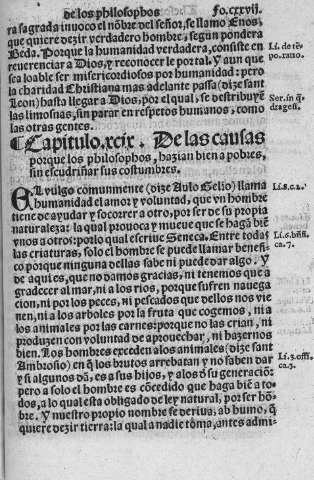 de los philosophos Fo. cxxvij.
ra sagrada inuoco el nõbre del señor, se llamo Enos,
que quiere dezir verdadero hombre, según pondera
Beda. Porque la humanidad verdadera, consiste en
reuerenciar a Dios, y reconocer le por tal. Y aun que
sea loable ser misericordiosos por humanidad: pero
la charidad Christiana mas adelante passa (dize sant
Leon) hasta llegar a Dios, por el qual, se destribuyẽ
las limosnas, sin parar en respetos humanos, como
las otras gentes.
Li. de tẽ
po. ratio.
Ser. in q̃
drages.
¶ Capitulo. xcix. De las causas
porque los philosophos, hazian bien a pobres,
sin escudriñar sus costumbres.
EL vulgo comunmente (dize Aulo Gelio) llama
humanidad el amor y voluntad, que vn hombre
tiene de ayudar y socorrer a otro, por ser de su propia
naturaleza: la qual prouoca y mueue que se hagã biẽ
vnos a otros: por lo qual escriue Seneca. Entre todas
las criaturas, solo el hombre se puede llamar benefi-
co porque ninguna dellas sabe ni puede dar algo. Y
de aqui es, que no damos gracias, ni tenemos que a
gradecer al mar, ni a los rios, porque sufren nauega
cion, ni por los peces, ni pescados que dellos nos vie
nen, ni a los arboles por la fruta que cogemos, ni a
los animales por las carnes: porque no las crian, ni
produzen con voluntad de aprouechar, ni hazernos
bien. Los hombres exceden a los animales (dize sant
Ambrosio) en q̃ los brutos arrebatan y no saben dar
y si algunos dã, es a sus hijos, y a los d̃ su generaciõ:
pero a solo el hombre es cõcedido que haga biẽ a to-
dos, a lo qual esta obligado de ley natural, por ser hõ-
bre. Y nuestro propio nombre se deriua, ab humo, q̃
quiere dezir tierra: la qual a nadie toma, antes admi-
Li. 8. c. 2.
Li. 6. bñfi.
ca. 7.
Li. 3. offi.
ca. 3.